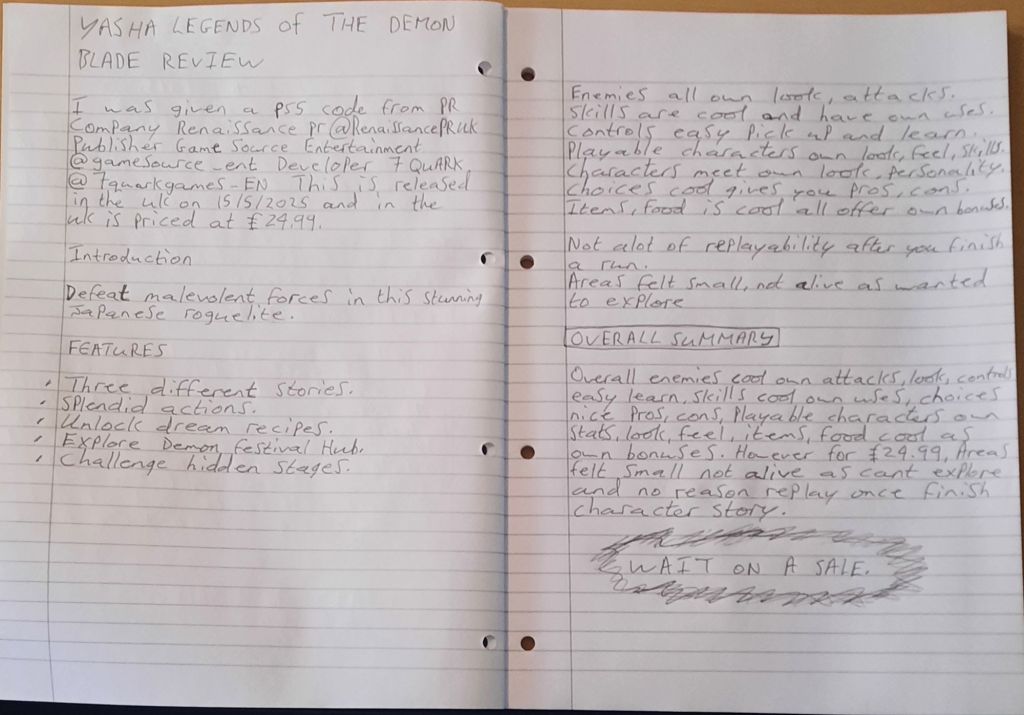 YASHA LEGENDS of THE DEMON
BLADE REVIEW
I was given a PS5 code from PR
Company Renaissance pr @RenaissancePRuk
Publisher Game Source Entertainment
@gamesource_ent Developer 7 QuARK
@7quarkgames-EN This is released
in the uk on 15/5/2025 and in the
uk is priced at £24.99.
Introduction
Defeat malevolent forces in this stunning
Japanese roguelite.
FEATURES
Three different stories.
Splendid actions.
Unlock dream recipes.
Explore Demon Festival Hub.
Challenge hidden stages.
Enemies all own look, attacks.
Skills are cool and have own uses.
Controls easy Pick up and learn.
Playable characters own look, feel, skills.
Characters meet own look, personality.
Choices cool gives you pros, cons.
Items, food is cool all offer own bonuses.
Not alot of replayability after you finish
a run.
Areas felt small, not alive as wanted
to explore
OVERALL SUMMARY
Overall enemies cool own attacks, look, controls
easy learn, skills cool own uses, choices
nice Pros, cons, Playable characters own
stats, look, feel, items, food cool as
own bonuses. However for £24.99, Areas
felt small not alive as cant explore
and no reason replay once finish
character story.
WAIT ON A SALE.